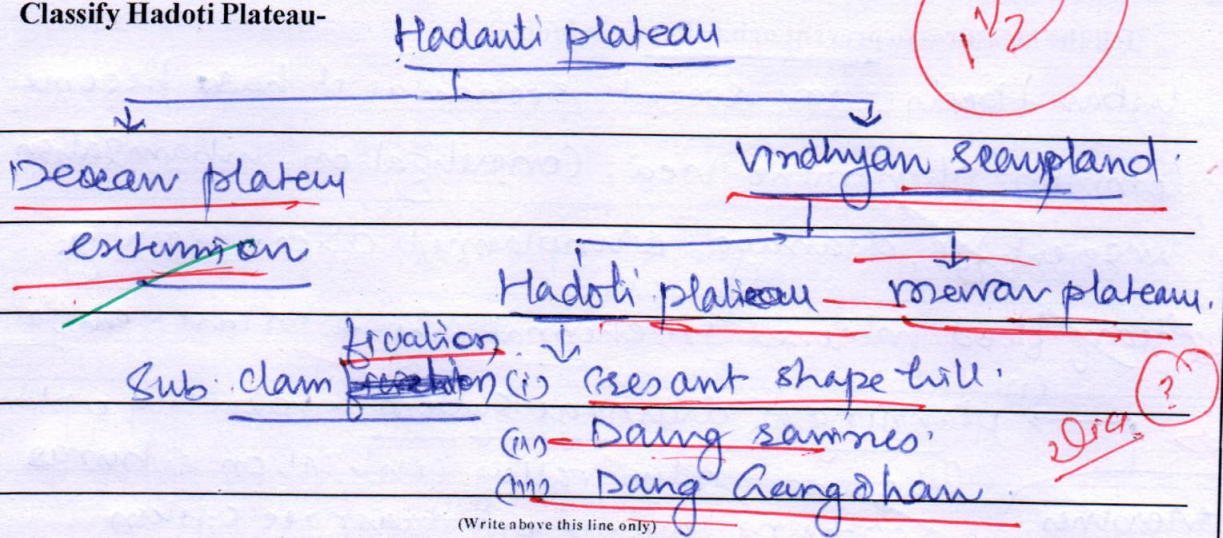 Classify Hadoti Plateau-
1 1/2
Hadauti plateau
Deccan plateau
extension
Vindhyan Scarpland.
Hadoti plateau
mewar plateau.
Sub classification
(i) Cresant shape hill.
(ii) Dang
(iii) Dang Gangdhar
?
(Write above this line only)